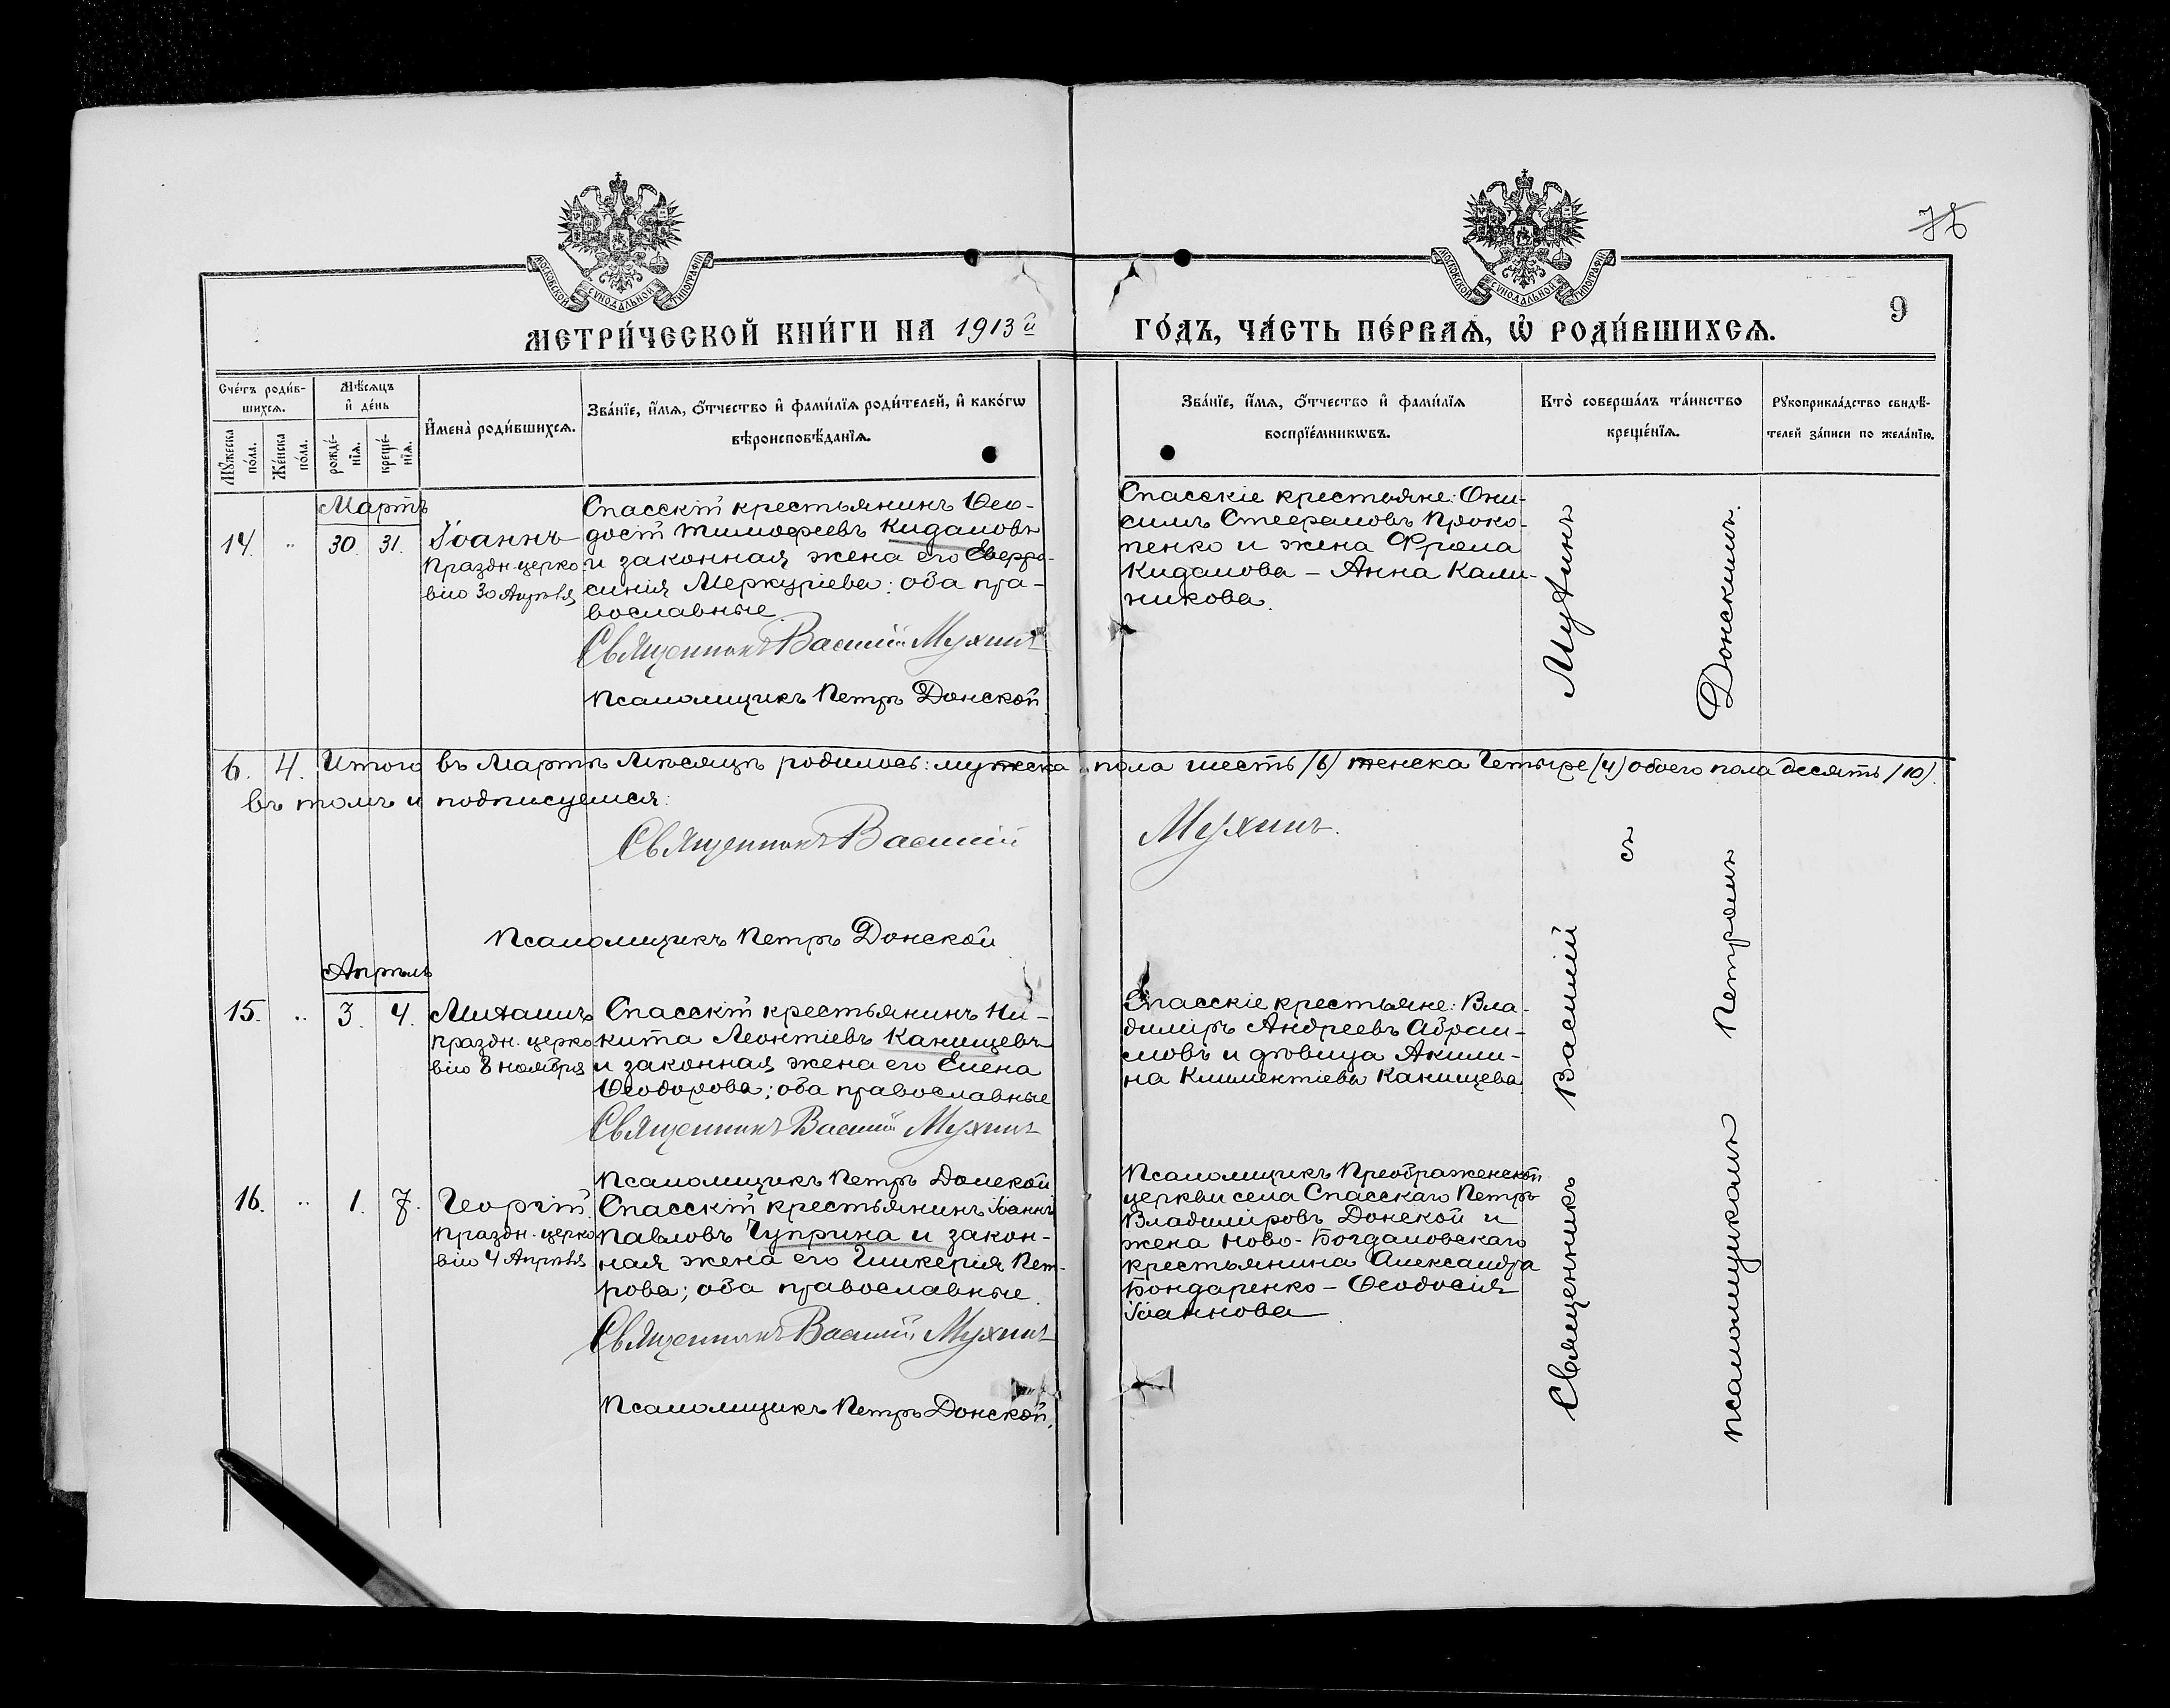 78
9
МОСКОВСКОЙ СУНОДАЛЬНОЙ ТИПОГРАФІИ
МОСКОВСКОЙ СУНОДАЛЬНОЙ ТИПОГРАФІИ
МЕТРИ́ЧЕСКОЙ КНИ́ГИ НА 1913й
ГО́ДЪ, ЧА́СТЬ ПЕ́РВАѦ, Ѡ҆ РОДИ́ВШИХСѦ.
Сче́тъ роди́в-
шихсѧ.
Мꙋ́жеска
по́ла.
Же́нска
по́ла.
Мѣ́сѧцъ
и҆ де́нь
рожде́-
нїѧ.
креще́-
нїѧ.
И҆мена̀ роди́вшихсѧ.
Зва́нїе, и҆́мѧ, ѻ҆́тчество и҆ фами́лїѧ роди́телей, и҆ како́гѡ
вѣроисповѣ́данїѧ.
Зва́нїе, и҆́мѧ, ѻ҆́тчество и҆ фами́лїѧ
воспрїе́мникѡвъ.
Кто̀ соверша́лъ та́инство
креще́нїѧ.
Рꙋкоприкла́дство свидѣ́-
телей за́писи по жела́нїю.
Мартъ
14. „ 30. 31.
Іоаннъ
Праздн. церко
вію 30 Апрѣля
Спасскій крестьянинъ Ѳео-
досій Тимофеевъ Кидаловъ
и законная жена его Евфро-
синія Меркуріева: оба пра-
вославные.
Священникъ Василій Мухинъ
Псаломщикъ Петръ Донской.
Спасскіе крестьяне: Они-
симъ Стефановъ Проко-
пенко и жена Фрола
Кидалова – Анна Кали-
никова.
6. 4. Итого въ Мартѣ мѣсяцѣ родилось: мужеска пола шесть /6/ женска четыре (4) обоего пола десять /10/.
въ томъ и подписуемся:
Священникъ Василій Мухинъ.
Псаломщикъ Петръ Донской
Апрѣль
15. „ 3. 4.
Михаилъ
Праздн. церко
вію 8 ноября
Спасскій крестьянинъ Ни-
кита Леонтіевъ Канищевъ
и законная жена его Елена
Ѳеодорова; оба православные
Священникъ Василій Мухинъ
Псаломщикъ Петръ Донской
Спасскіе крестьяне: Вла-
диміръ Андреевъ Абраи-
мовъ и дѣвица Акили-
на Климентіева Канищева
16. „ 1. 7.
Георгій.
Праздн. церко
вію 4 Апрѣля
Спасскій крестьянинъ Іоаннъ
Павловъ Чуприна и закон-
ная жена его Гликерія Пет-
рова; оба православные.
Священникъ Василій Мухинъ
Псаломщикъ Петръ Донской.
Псаломщикъ Преображенской
церкви села Спасскаго Петръ
Владиміровъ Донской и
жена Ново-Богдановскаго
крестьянина Александра
Бондаренко – Ѳеодосія
Іоаннова
Священникъ Василій Мухинъ
съ
псаломщикомъ Петромъ Донскимъ.